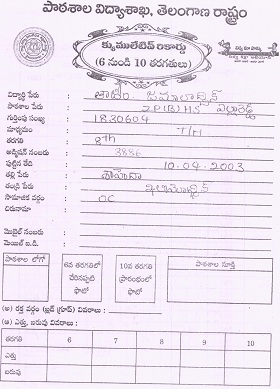 పాఠశాల విద్యాశాఖ, తెలంగాణ రాష్ట్రం
క్యుములేటివ్ రికార్డు
(6 నుండి 10 తరగతులు)
విద్యార్థి పేరు :
పాఠశాల పేరు : ZP(B)HS
గుర్తింపు సంఖ్య : 1830604
మాధ్యమం : T/H
తరగతి : 8th
అడ్మిషన్ నంబరు : 3886
పుట్టిన తేది : 10-04-2003
తల్లి పేరు :
తండ్రి పేరు :
సామాజిక వర్గం : OC
చిరునామా :
మొబైల్ నంబరు :
మెయిల్ ఐ.డి. :
పాఠశాల లోగో
6వ తరగతిలో చేరినప్పటి ఫొటో
10వ తరగతి ప్రారంభంలో ఫొటో
పాఠశాల స్ఫూర్తి
(అ) రక్త వర్గం (బ్లడ్ గ్రూప్) వివరాలు :
(ఆ) ఎత్తు, బరువు వివరాలు :
తరగతి 6 7 8 9 10
ఎత్తు
బరువు